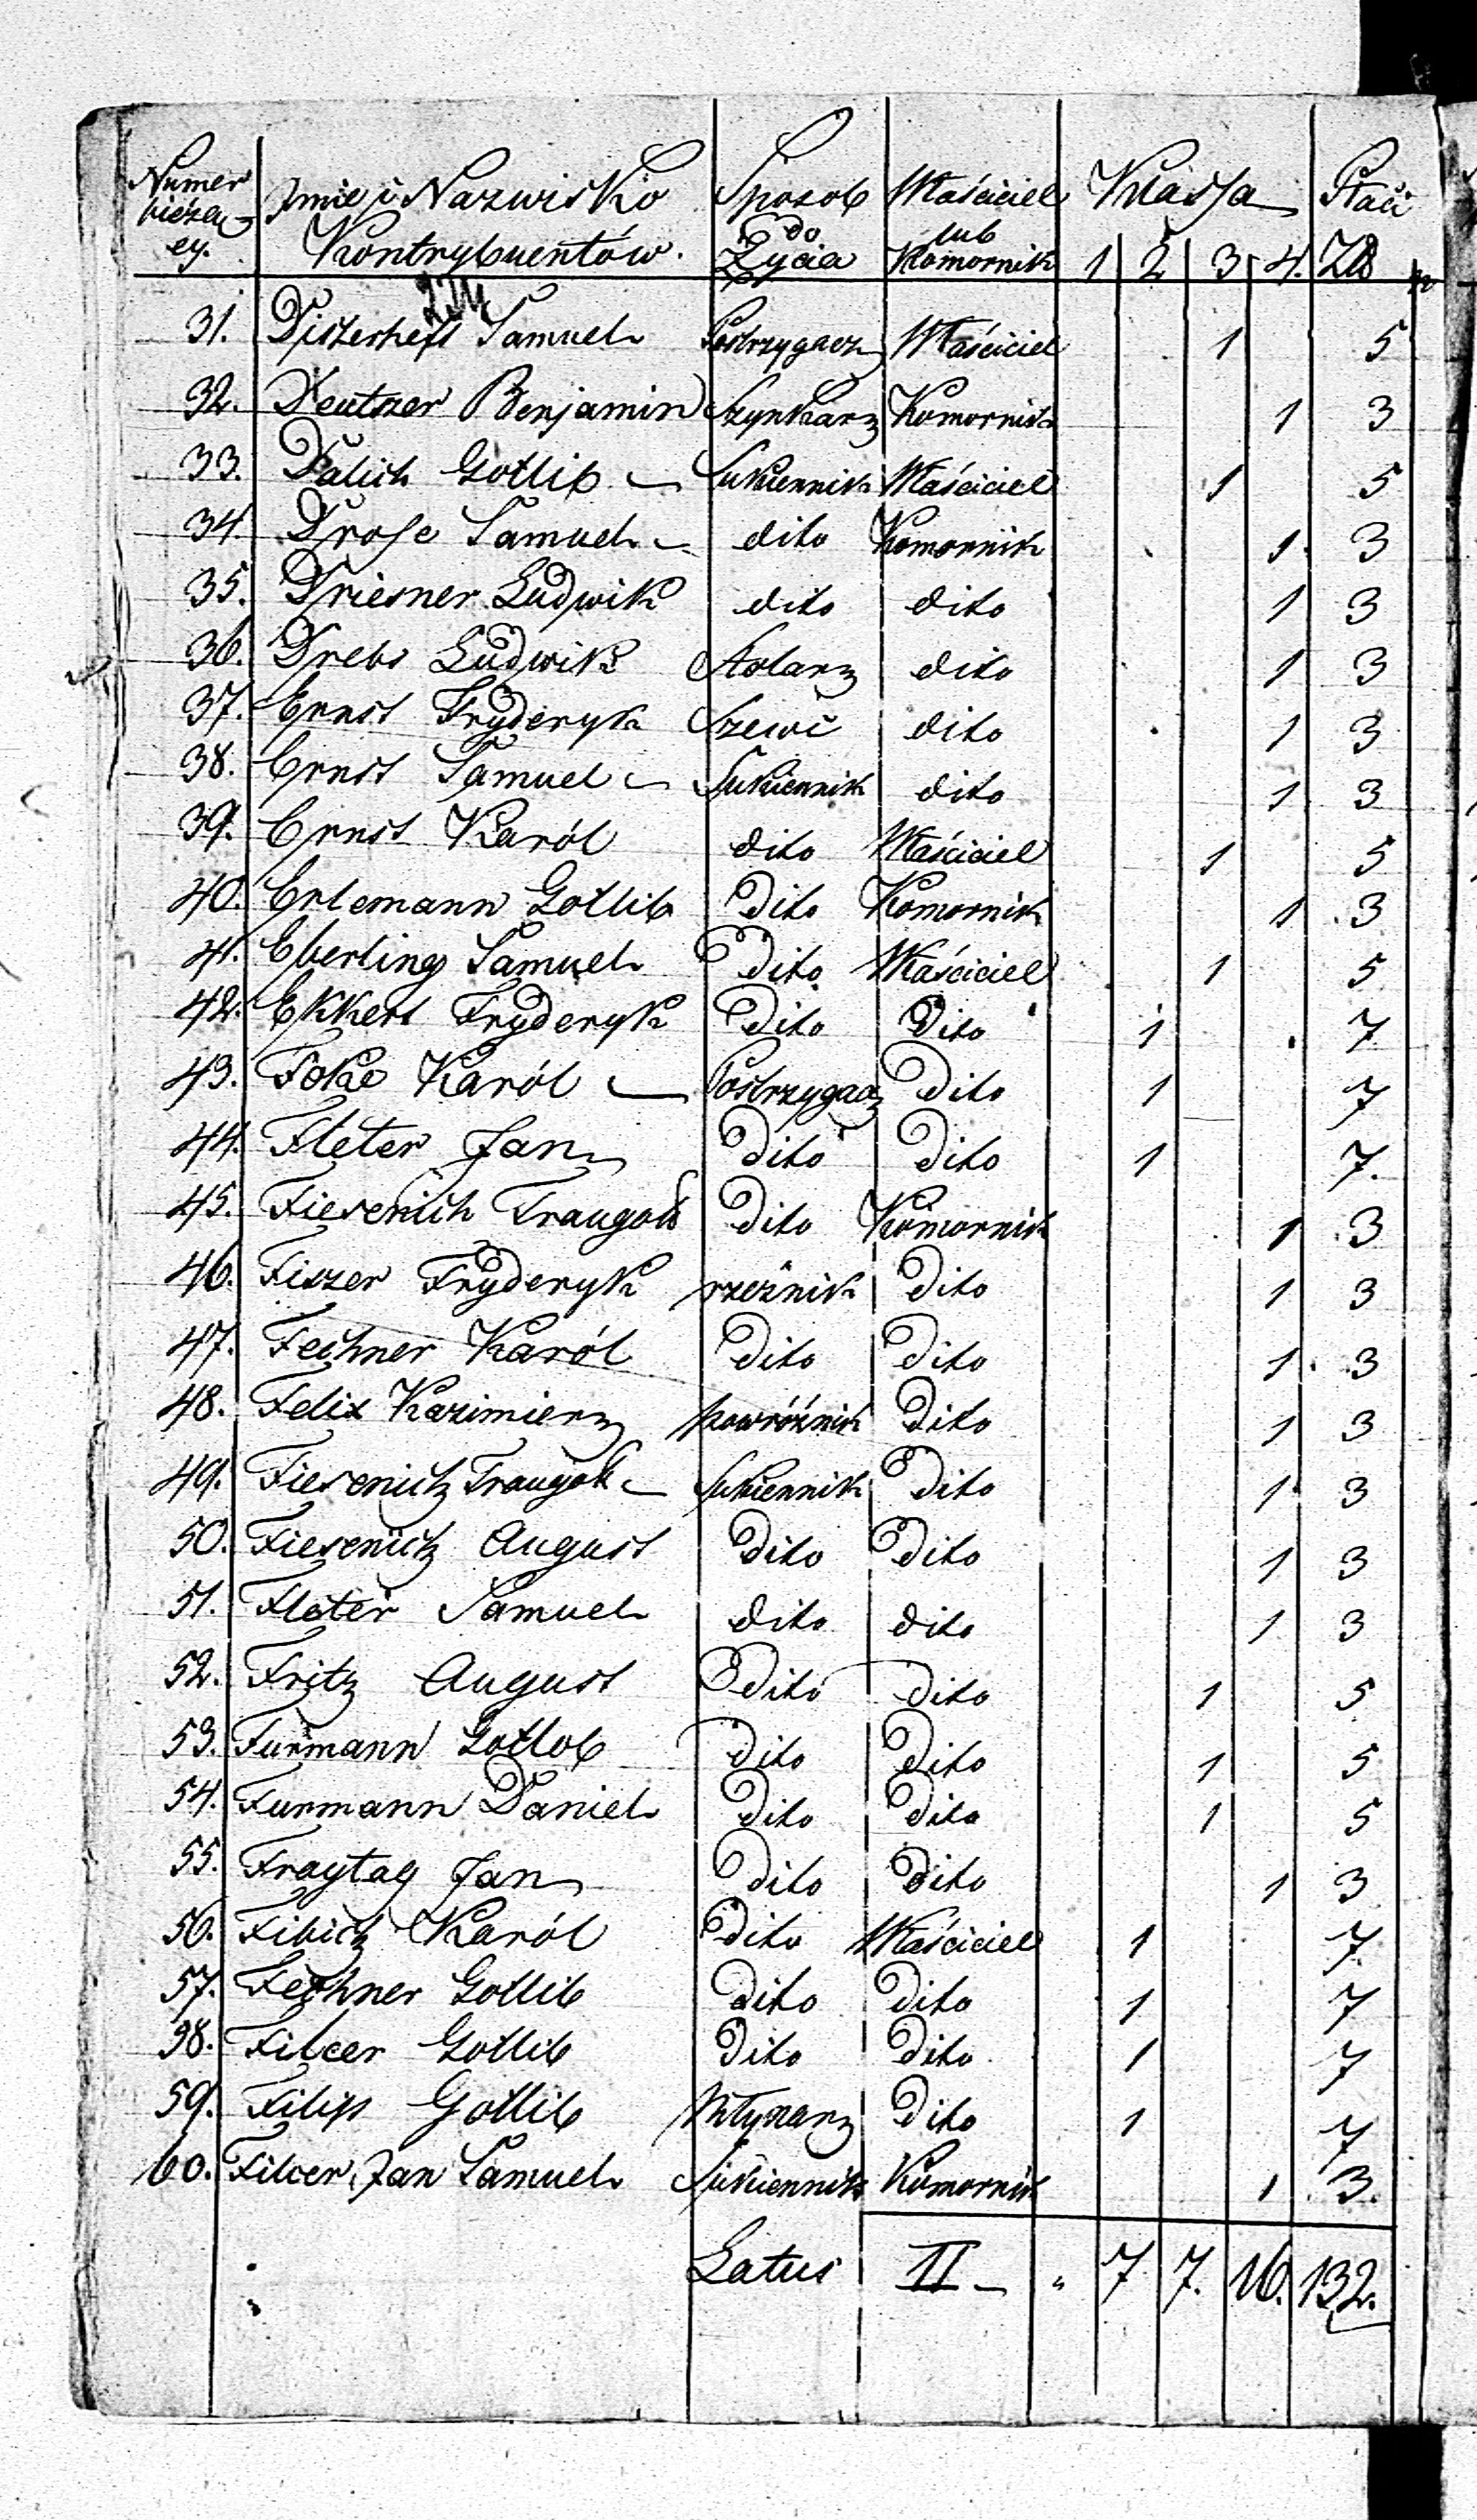 Numer bieżący. Imie i Nazwisko Kontrybuentów. Sposob do Życia Właściciel lub Komornik Klassa 1 2 3 4. Płaci Zł
31. Disterheft Samuel Postrzygacz Właściciel 1 5
32. Deutszer Benjamin Szynkarz Komornik 1 3
33. Dalich Gotlib Sukiennik Właściciel 1 5
34. Drose Samuel dito Komornik 1 3
35. Driesner Ludwik dito dito 1 3
36. Drebs Ludwik Stolarz dito 1 3
37. Ernst Fryderyk Szewc dito 1 3
38. Ernst Samuel Sukiennik dito 1 3
39. Ernst Karól dito Właściciel 1 5
40. Erlemann Gotlib Dito Komornik 1 3
41. Eberling Samuel Dito Właściciel 1 5
42. Ekkert Fryderyk Dito Dito 1 7
43. Foke Karól Postrzygacz Dito 1 7
44. Fleter Jan Dito Dito 1 7.
45. Fiesenich Traugott Dito Komornik 1 3
46. Fiszer Fryderyk rzeźnik Dito 1 3
47. Fechner Karól Dito Dito 1 3
48. Felix Kazimierz powróźnik Dito 1 3
49. Fiesenich Traugott Sukiennik Dito 1 3
50. Fiesenich August Dito Dito 1 3
51. Fleter Samuel dito dito 1 3
52. Fritz August Dito dito 1 5
53. Furmann Gotlob Dito Dito 1 5
54. Furmann Daniel Dito Dito 1 5
55. Fraytag Jan Dito Dito 1 3
56. Fibich Karól Dito Właściciel 1 7.
57. Fechner Gotlib Dito Dito 1 7
58. Filcer Gotlib Dito Dito 1 7
59. Filip Gotlib Młynarz Dito 1 7
60. Filcer Jan Samuel Sukiennik Komornik 1 3.
Latus II - " 7 7. 16. 132.